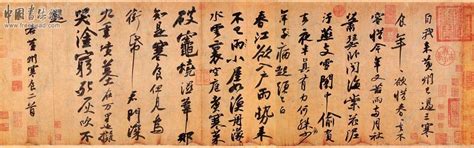 中国書法网
自我来黄州已過三寒
食年々欲惜春春去不
容惜今年又苦雨兩月秋
蕭瑟卧聞海棠花泥
汙燕支雪闇中偷負
去夜半真有力何殊少
年子病起頭已白
春江欲入戶雨勢來
不已雨小屋如漁舟濛
水雲裏空庖煮寒菜
破竈燒濕葦那
知是寒食但見烏
銜帋君門深
九重墳墓在万里也擬
哭塗窮死灰吹不
起
右黄州寒食二首